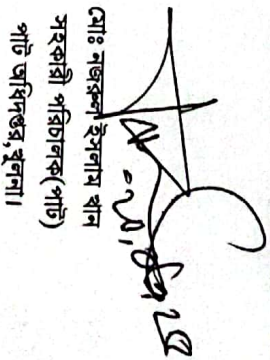 মোঃ নজরুল ইসলাম খান
সহকারী পরিচালক(পাট)
পাট অধিদপ্তর, খুলনা।